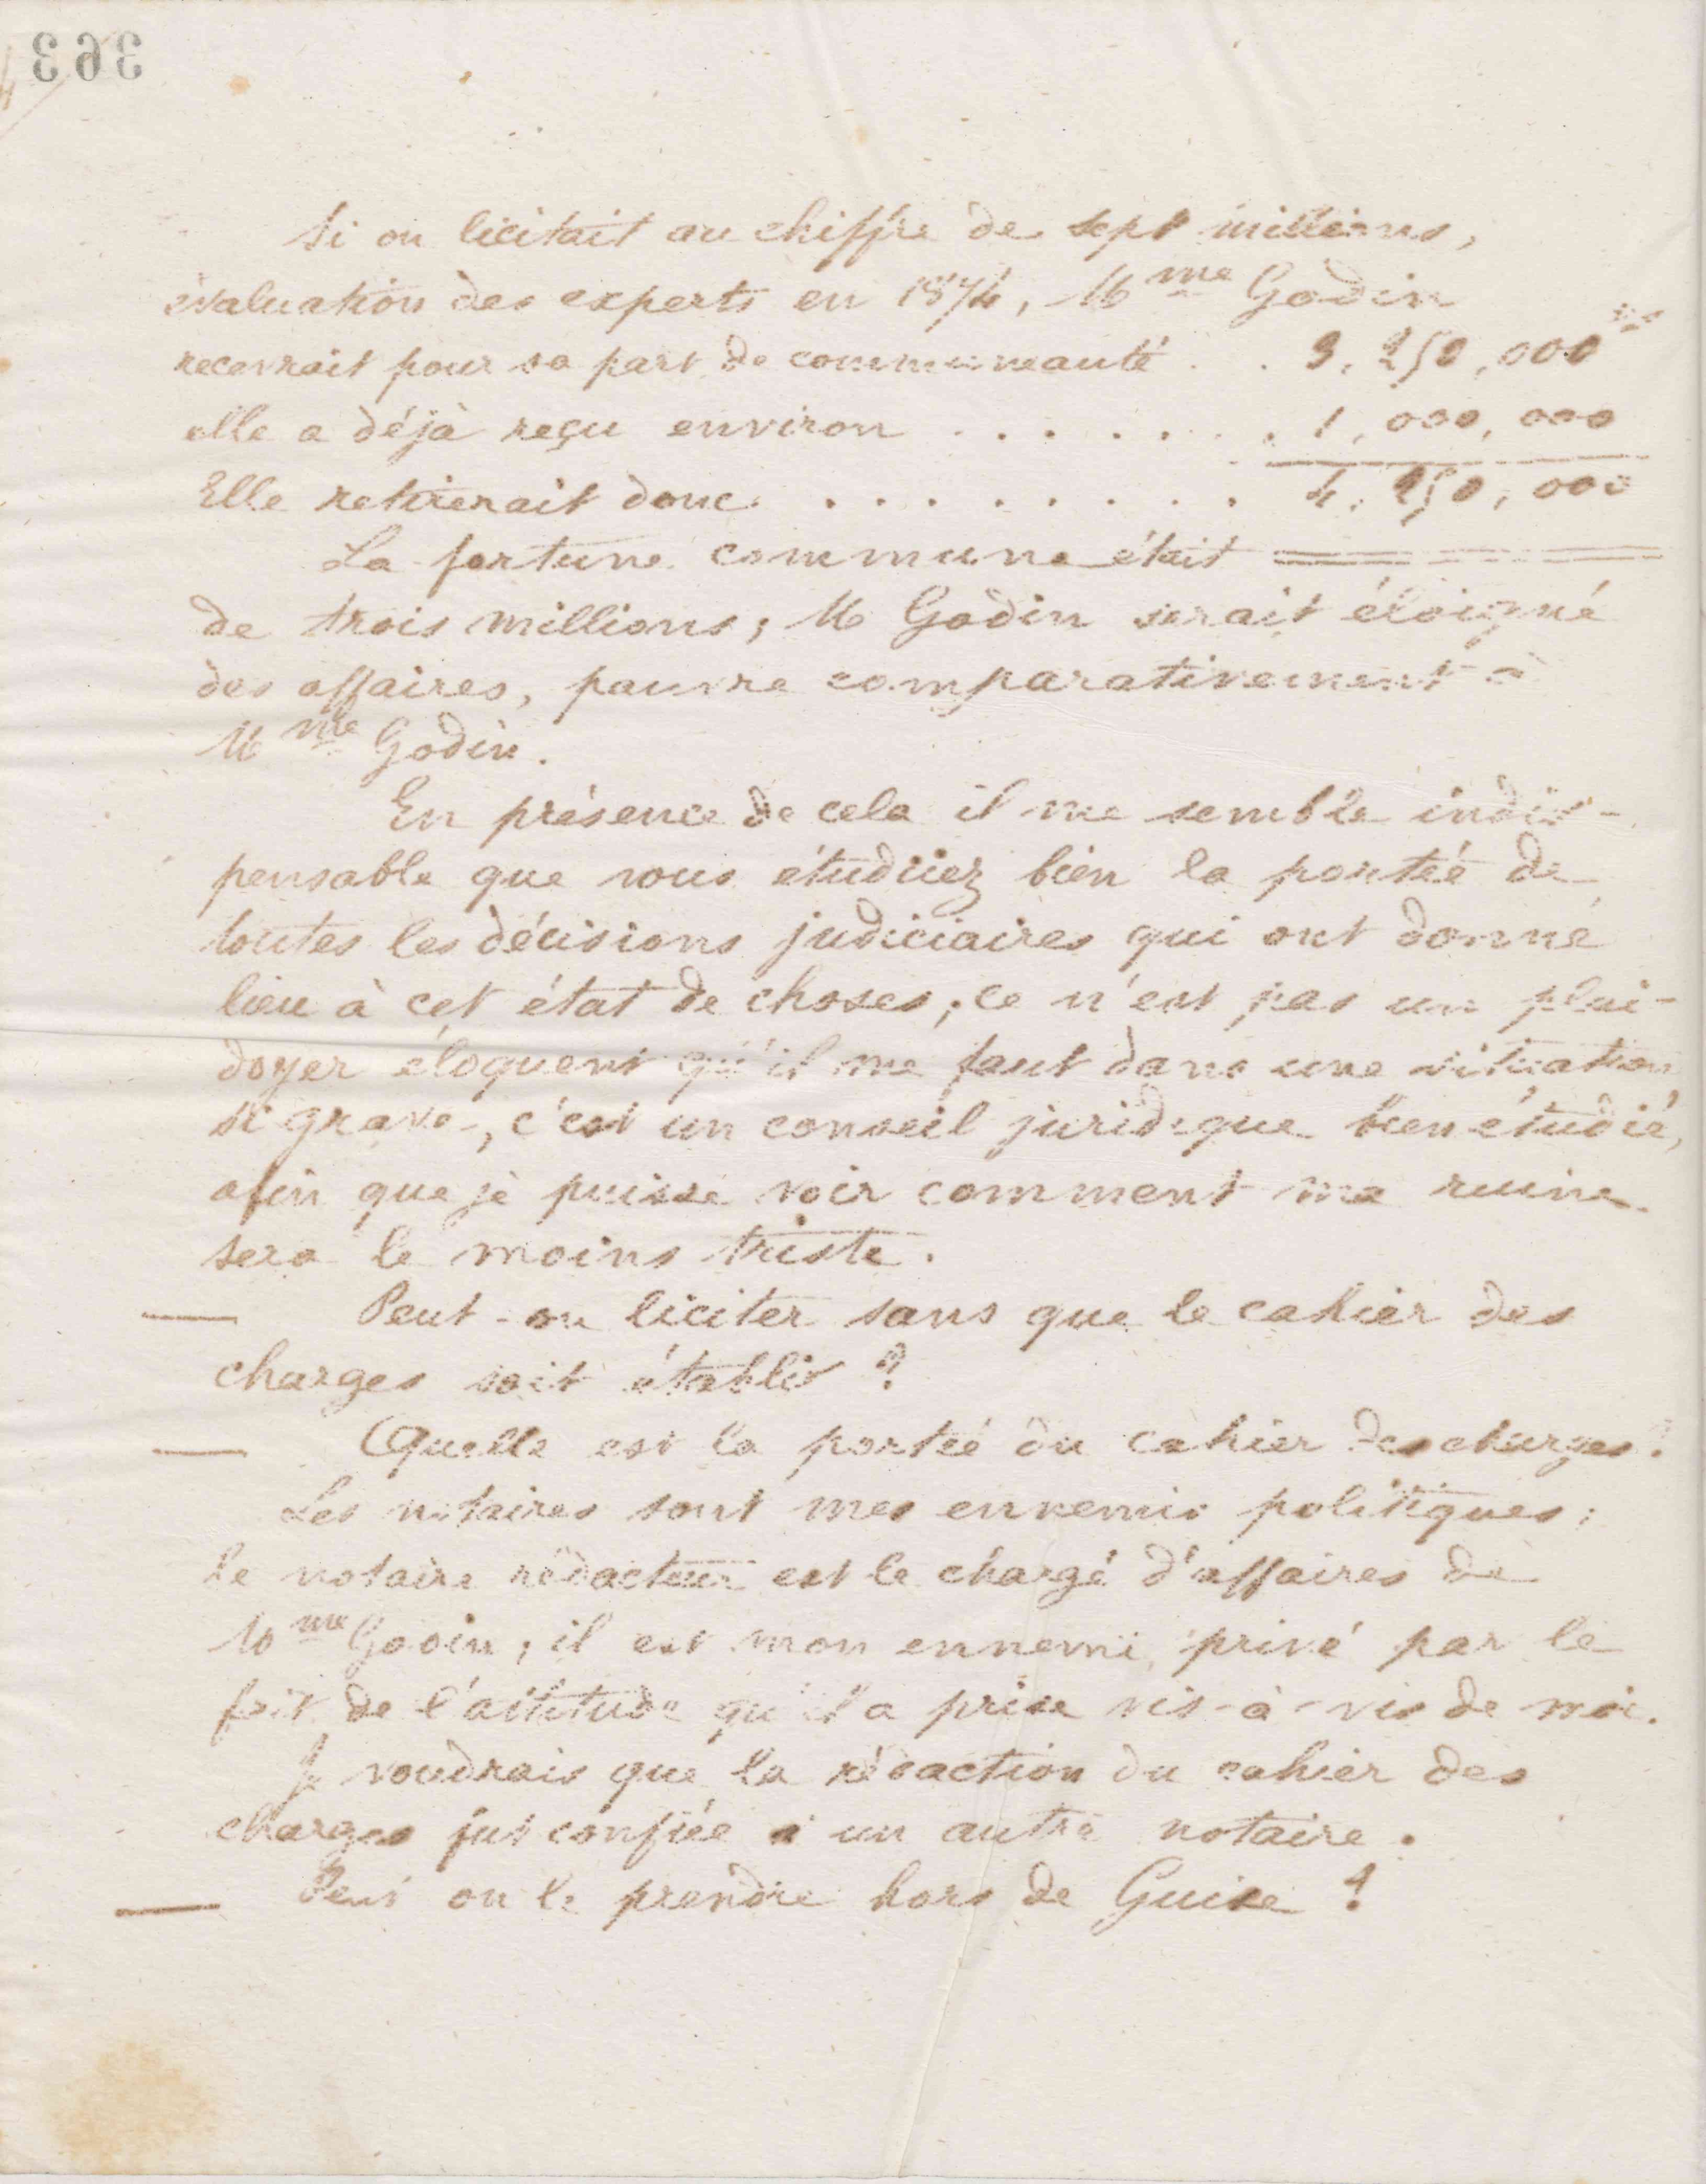 363
Si on licitait au chiffre de sept millions,
évaluation des experts en 1874, Mme Godin
recevrait pour sa part de communauté . . 3,250,000
elle a déjà reçu environ . . . . . . . 1,000,000
Elle retirerait donc . . . . . . . . . 4,250,000
La fortune commune était
de trois millions; M Godin serait éloigné
des affaires, pauvre comparativement à
Mme Godin.
En présence de cela il me semble indis-
pensable que vous étudiiez bien la portée de
toutes les décisions judiciaires qui ont donné
lieu à cet état de choses; ce n'est pas un plai-
doyer éloquent qu'il me faut dans une situation
si grave, c'est un conseil juridique bien étudié,
afin que je puisse voir comment ma ruine
sera le moins triste.
— Peut-on liciter sans que le cahier des
charges soit établi ?
— Quelle est la portée du cahier des charges ?
Les notaires sont mes ennemis politiques;
le notaire rédacteur est le chargé d'affaires de
Mme Godin; il est mon ennemi privé par le
fait de l'attitude qu'il a prise vis-à-vis de moi.
Je voudrais que la rédaction du cahier des
charges fut confiée à un autre notaire.
— Peut on le prendre hors de Guise ?